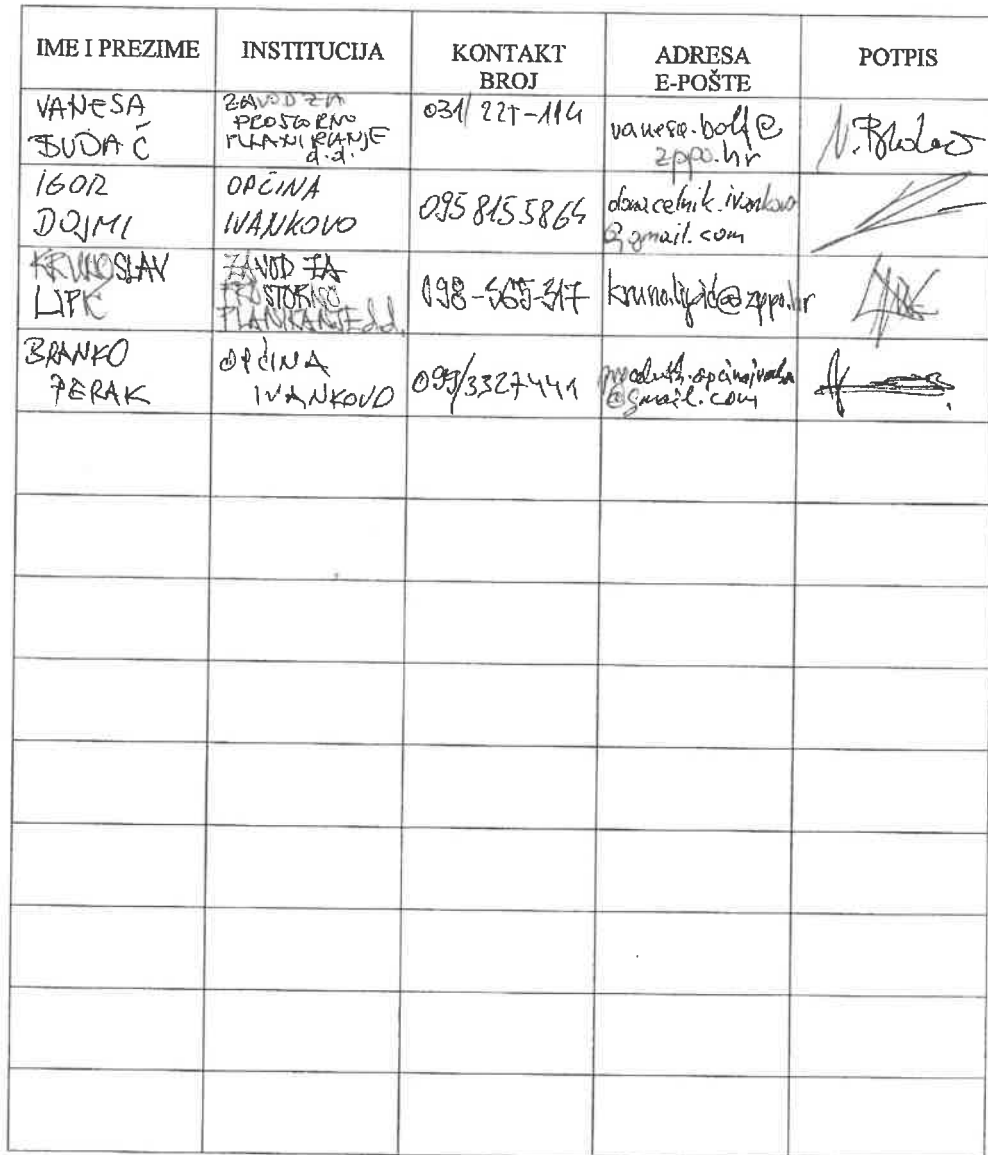 IME I PREZIME
INSTITUCIJA
KONTAKT
BROJ
ADRESA
E-POŠTE
POTPIS
VANESA
BUDAČ
ZAVOD ZA
PROSTORNO
PLANIRANJE
d.d.
vanesa.bolf@
zppo.hr
V. Budač
IGOR
DOJMI
OPĆINA
IVANKOVO
095 8155864
@gmail.com
KRUNOSLAV
LIPIĆ
ZAVOD ZA
PROSTORNO
PLANIRANJE d.d.
098-565-317
kruno.lipic@zppo.hr
BRANKO
PERAK
OPĆINA
IVANKOVO
099/3327441
@gmail.com